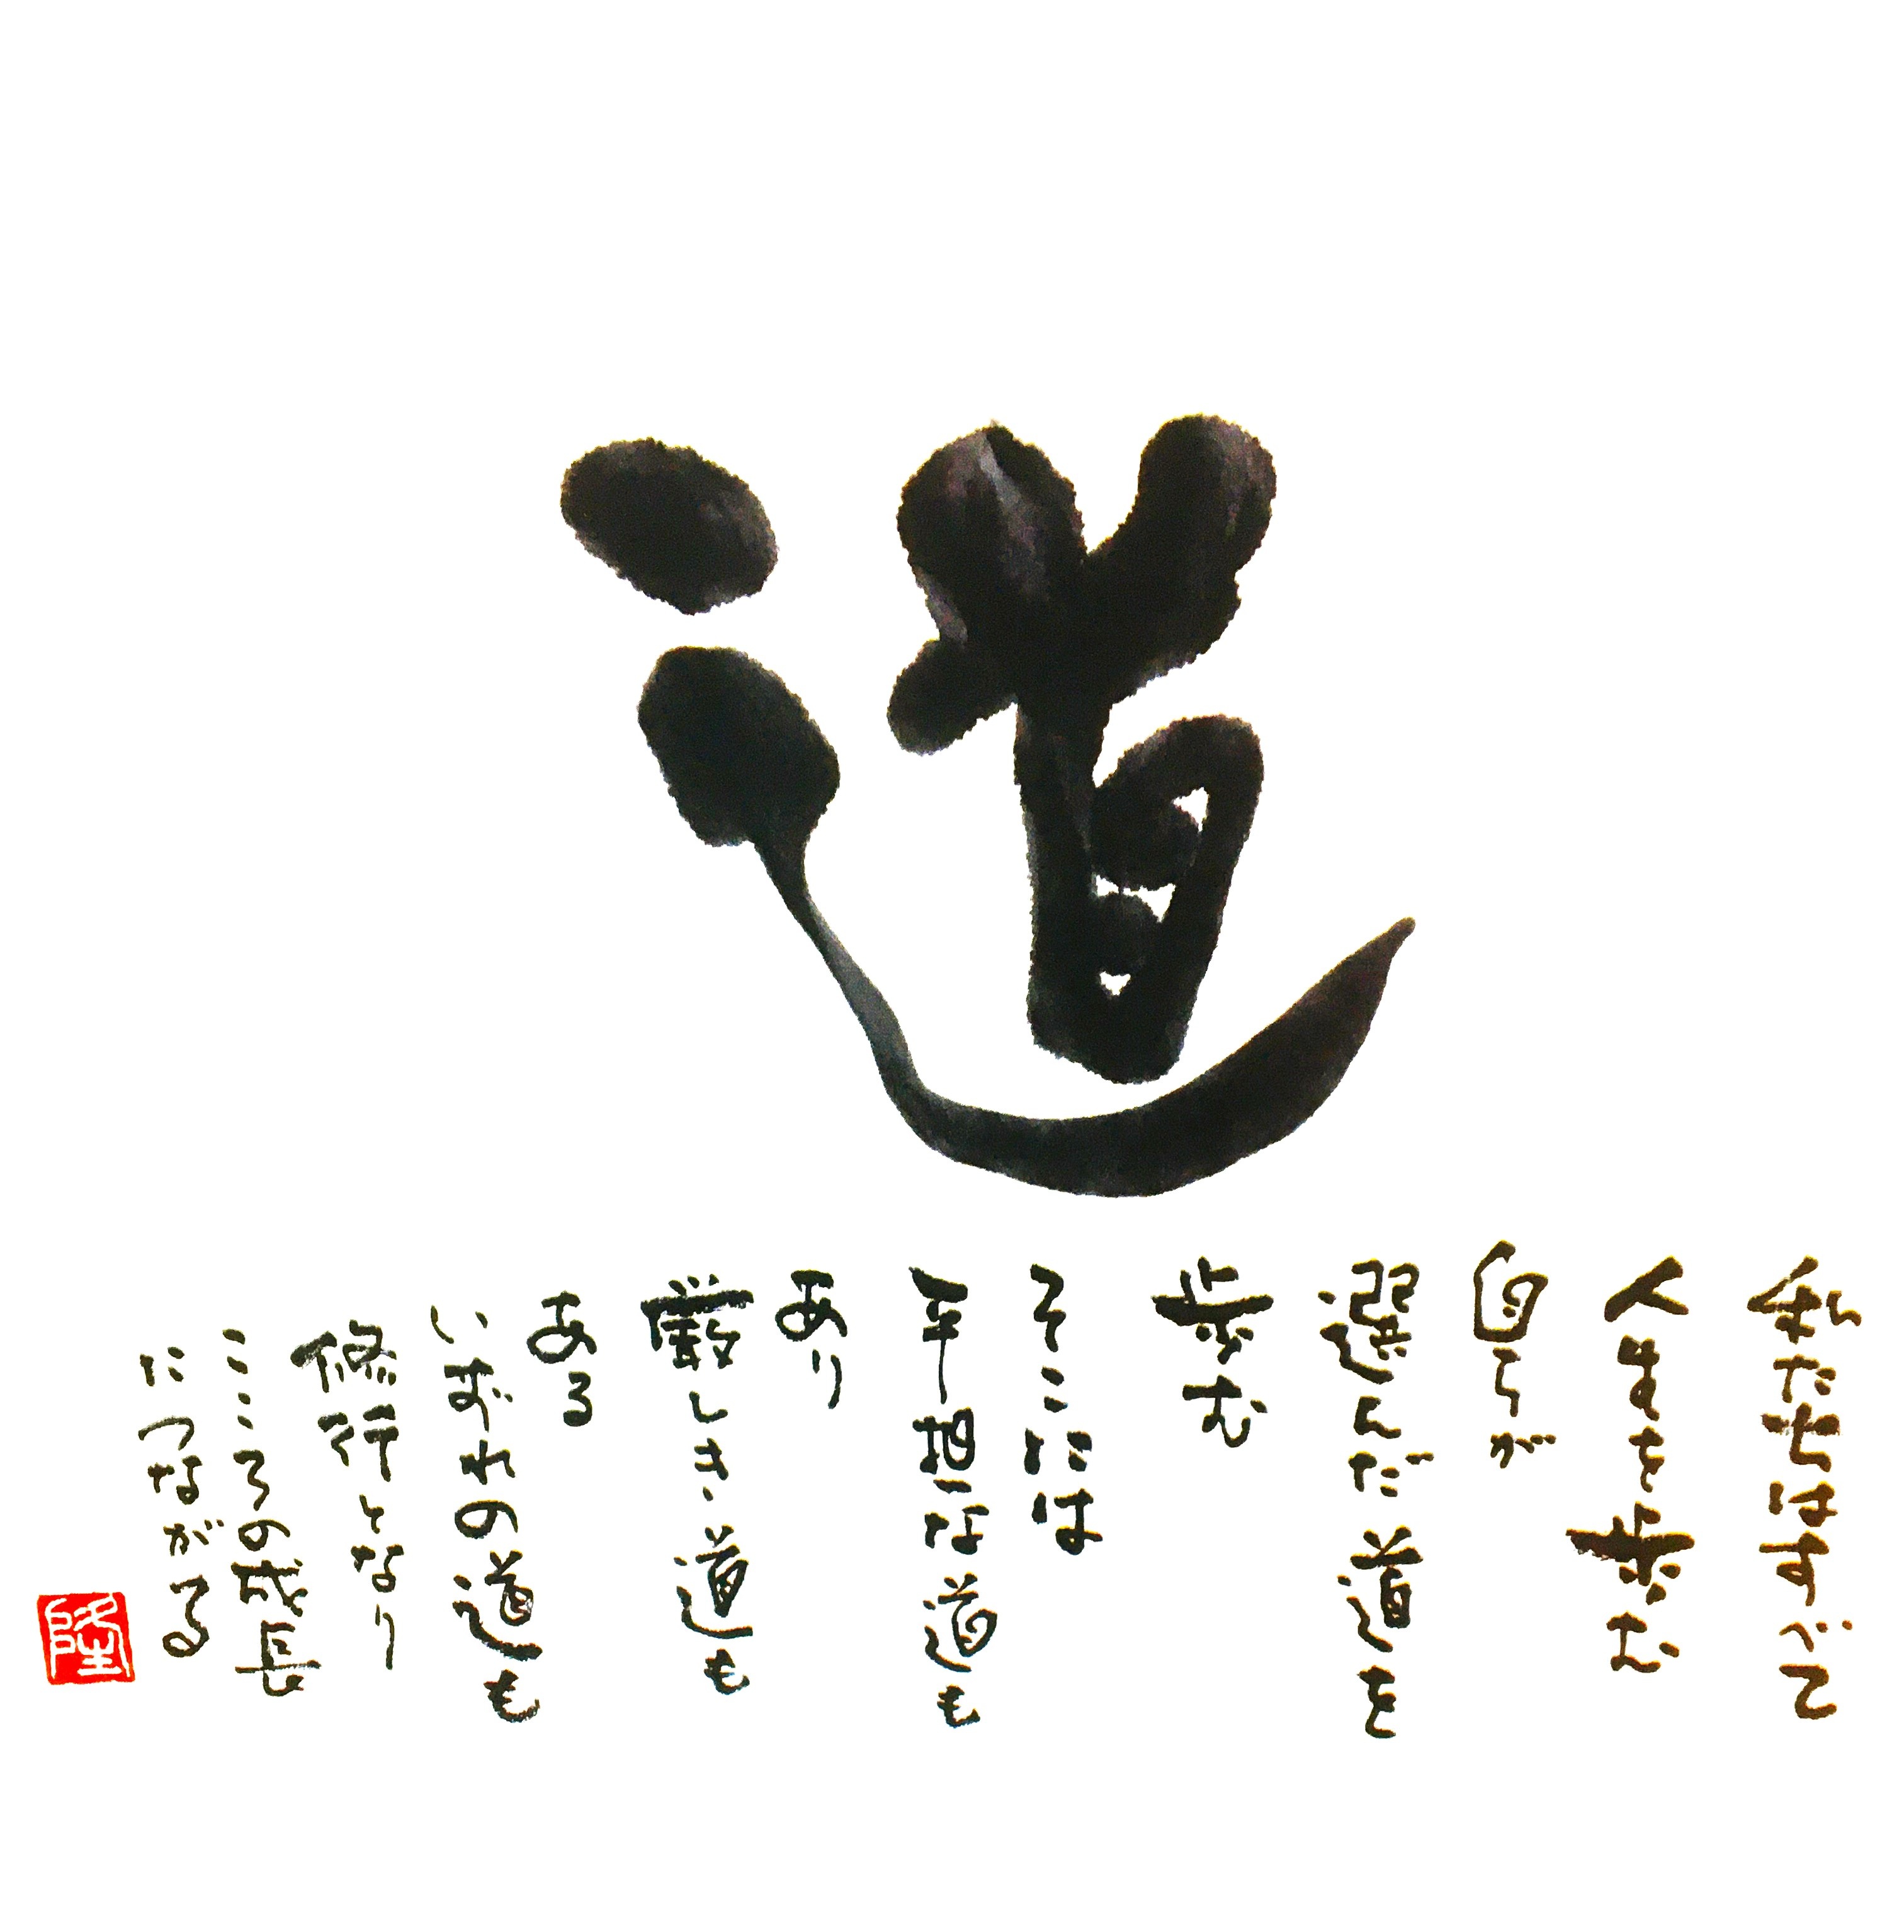 道
私たちはすべて
人生を歩む
自らが
選んだ道を
歩む
そこには
平担な道も
あり
厳しき道も
ある
いずれの道も
修行となり
こころの成長
につながる
隆